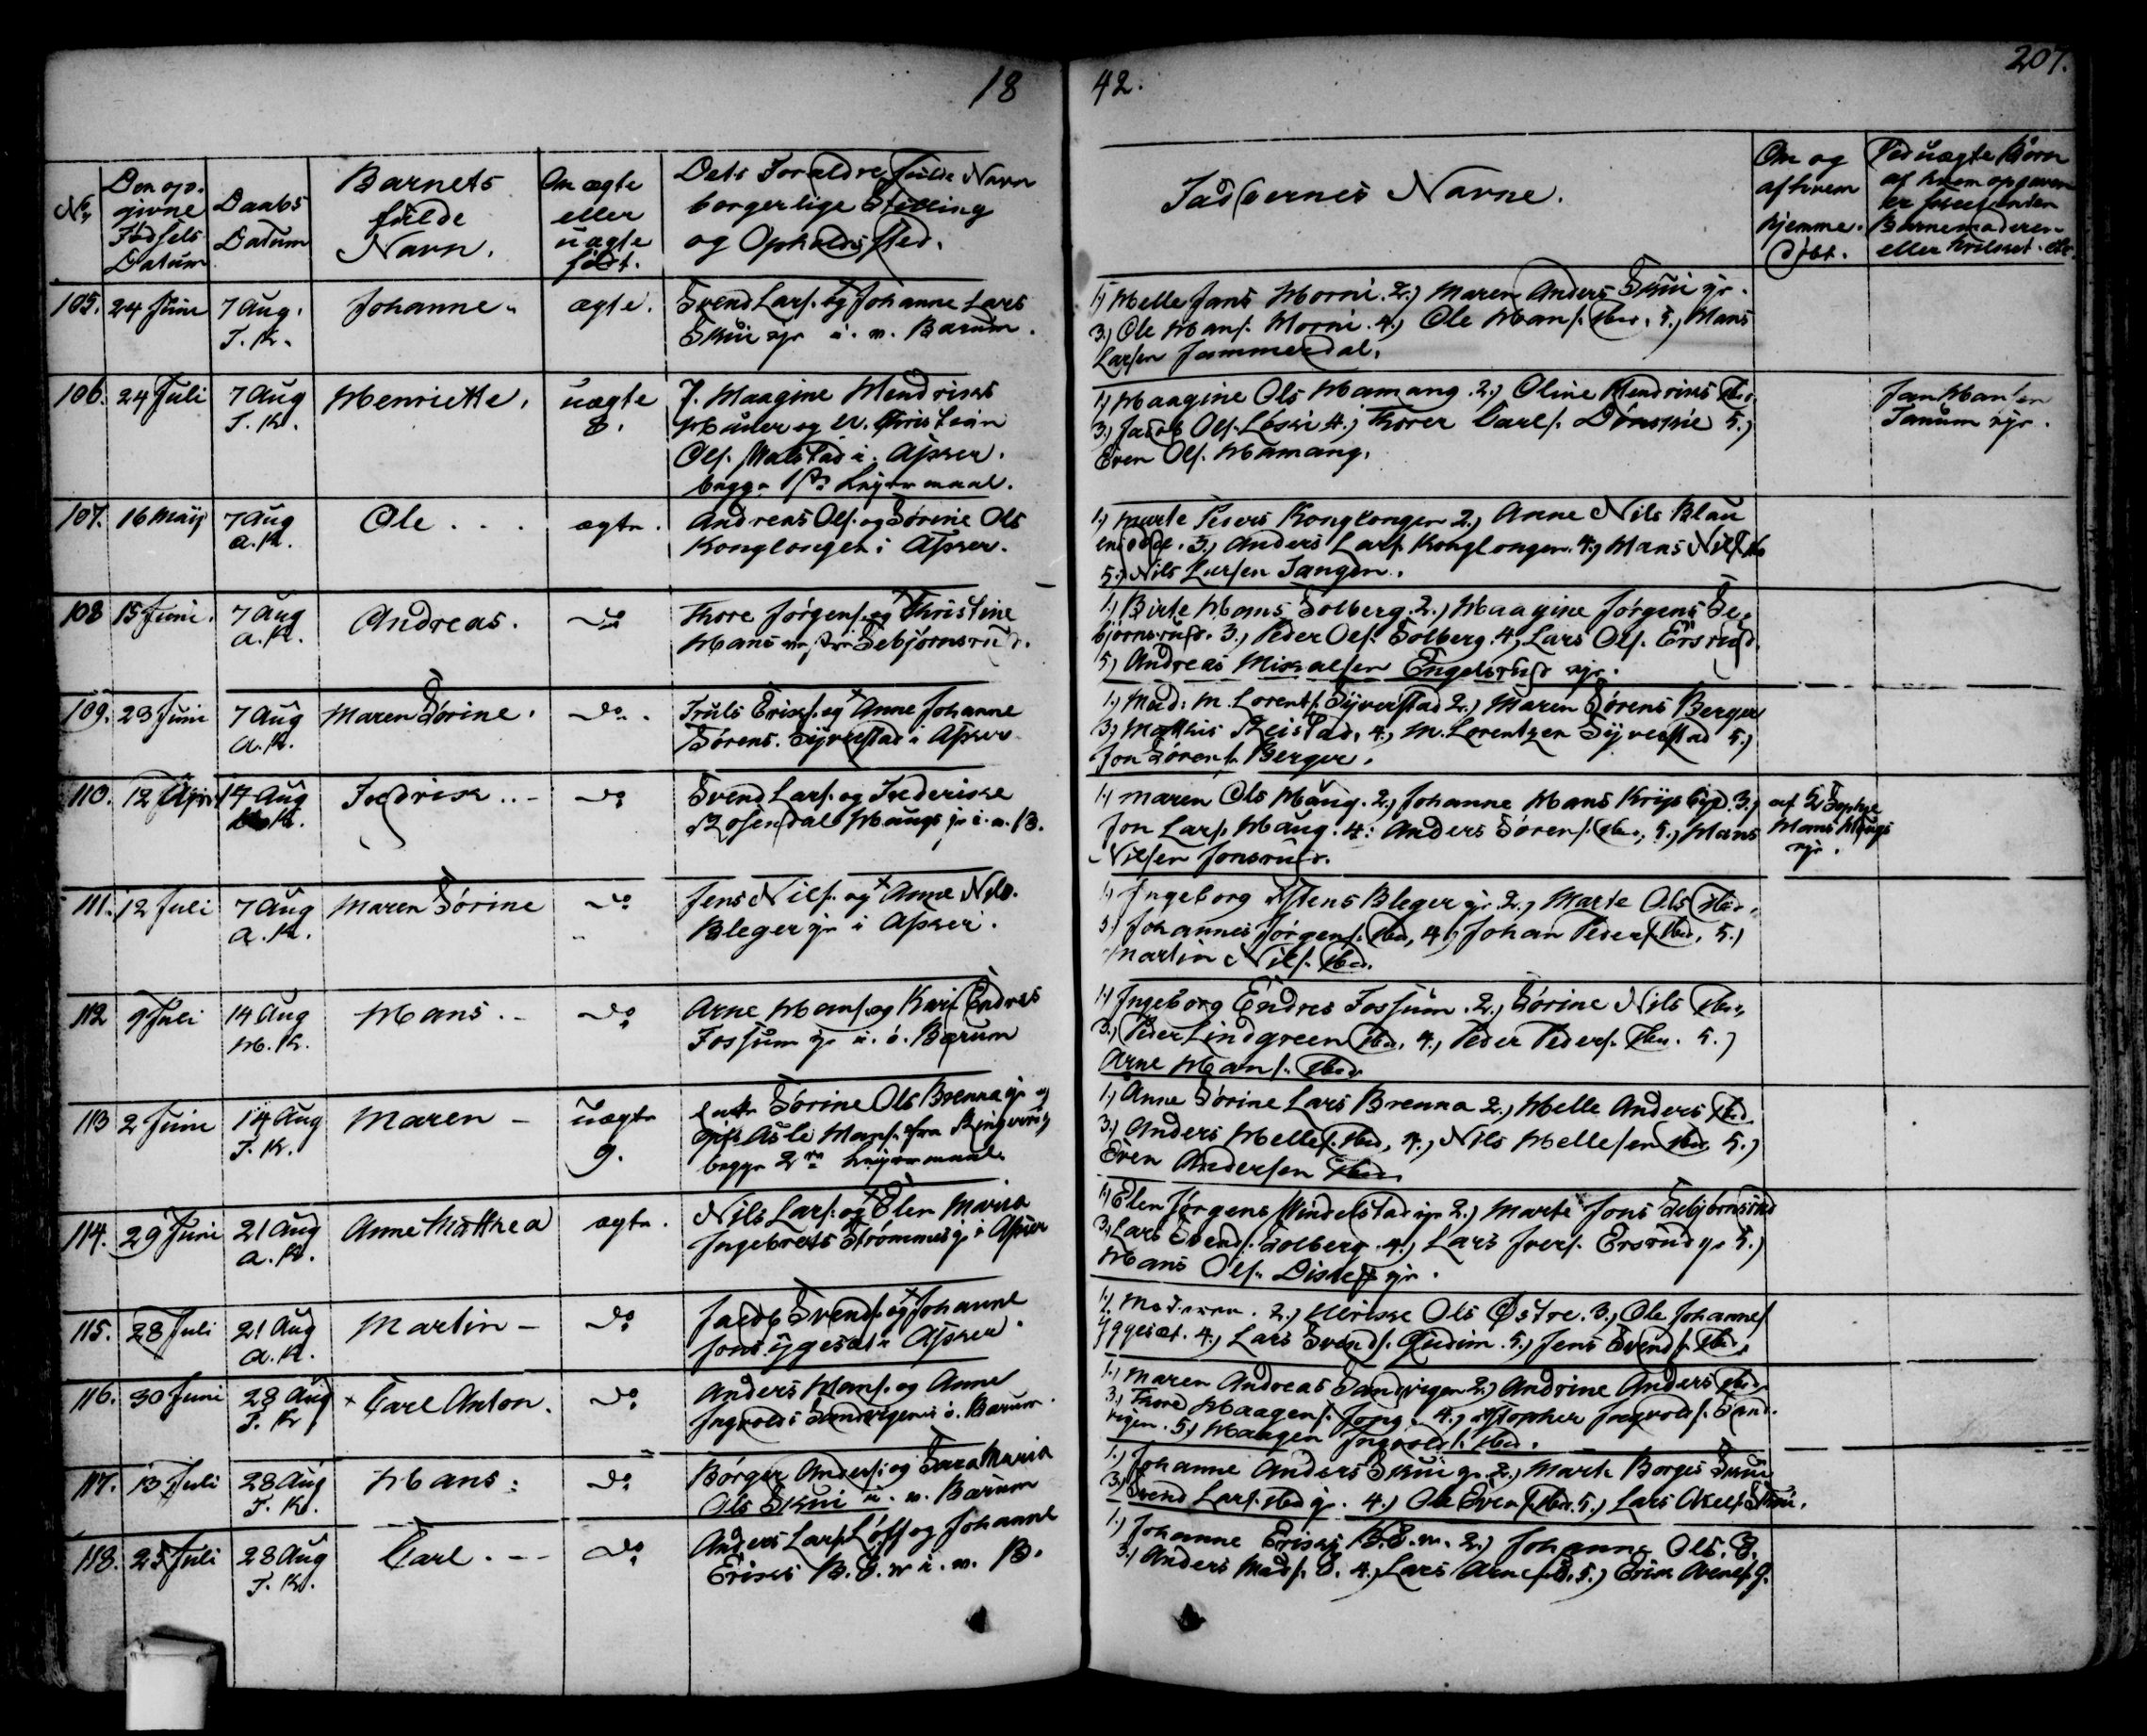 18
42.
207.
No
Den op.
givne
Fødsels
Datum
Daabs
Datum
Barnets
fulde
Navn.
Om ægte
eller
uægte
født.
Dets Forældres fulde Navn
borgerlige Stilling
og Opholds Sted.
Fadernes Navne.
Om og
af hvem
hjemme-
døbt.
Ved uægte Børn
af hvem opgaven
Barnemoderen
105. 24 Juni 7 Aug. Johanne. ægte. Svend Lars. og Johanne Lars
T. K. Skui i. v. Bærum.
1.) Helle Jans Horni. 2.) Maren Anders Skui
3.) Ole Hans. Horni. 4.) Ole Hans. sted. 5.) Hans
Larsen Jammerdal.
106. 24 Juli 7 Aug Henriette. uægte P. Haagine Hendriks
T. K. 8. og U. Christian
Ols. Valstad i Asker.
begge 1ste Leiermaal.
1.) Haagine Ols Hamang. 2.) Oline Hendriks sted.
3.) Jacob Ols. Løkke 4.) Thorer Carls. Dønskie 5.)
Even Ols. Hamang.
Jan Hansen
Tanum
107. 16 Maij 7 Aug Ole . . . ægte. Andreas Ols. og Sørine Ols
a. K. Konglongen i Asker.
1.) Marte Peders Konglongen 2.) Anne Nils Blau
3.) Anders Lars. Konglongen. 4.) Hans Nils.
5.) Nils Larsen Tangen.
108 15 Juni. 7 Aug Andreas. do Thore Jørgens. og Christine
a. K. Hans Sebjørnsrud.
1.) Birte Hans Solberg. 2.) Haagine Jørgens Se-
bjørnsrud. 3.) Peder Ols. Solberg. 4.) Lars Ols. Ersrud.
5.) Andreas Mikalsen Engelsrud
109. 23 Juni 7 Aug Maren Sørine. do. Truls Eriks. og Anne Johanne
a. K. Sørens. Syverstad i Asker
1.) Mad. M. Lorents. Syverstad 2.) Maren Sørens Berger
3.) Mathis Reistad. 4.) M. Lorentzen Syverstad 5.)
Jon Sørens. Berger.
110. 12 April 14 Aug Fredrik . . - do Svend Lars. og Frederikke
K. Rosendal Haugs i. v. B.
1.) Maren Ols Haug. 2.) Johanne Hans Krybyd. 3.)
Jon Lars. Haug. 4: Anders Sørens. sted, 5.) Hans
Nilsen Jonsrud.
af Sophie
Hans Haugs
111. 12 Juli 7 Aug Maren Sørine do Jens Nils. og Anne Nils.
a. K. Bleger i Asker.
1.) Ingeborg Bleger 2.) Marte Ols sted.
3.) Johannes Jørgens. sted, 4.) Johan Peders. sted. 5.)
Martin Nils. sted.
112 9 Juli 14 Aug Hans . - do Arne Hans. og Kari Endres
H. K. Fossum i. ö. Bærum
1.) Ingeborg Endres Fossum. 2.) Sørine Nils sted.
3.) Peder Lindgreen sted. 4.) Peder Peders. sted. 5.)
Arne Hans. sted.
113 2 Juni 14 Aug Maren - uægte Sørine Ols Brenna og
T. K. 9. gift Asle Hans. fra Ringerrig
begge 2n Leiermaal.
1.) Anne Sørine Lars Brenna 2.) Helle Anders sted
3.) Anders Helles. sted, 4.) Nils Hellesen sted. 5.)
Even Andersen sted
114. 29 Juni 21 Aug Anne Mathea ægte. Nils Lars. og Elen Maria
a. K. Ingebrets Strømmes i Asker
1.) Elen Jørgens Windelstad 2.) Marte Jons Sebjørnsrud
3.) Lars Svends. Solberg. 4.) Lars Ivers. Ersrud 5.)
Hans Ols. Disked
115. 28 Juli 21 Aug Martin - do Jacob Svends. og Johanne
a. K. Jons. Yggesæt i Asker.
1.) Moderen. 2.) Ulrikke Ols Østre. 3.) Ole Johannes
Yggesæt. 4.) Lars Svends. Gudim. 5.) Jens Svends. sted.
116. 30 Juni 28 Aug Carl Anton. do Anders Hans. og Anne
T. K. Ingvolds Sandvigen i ö. Bærum.
1.) Maren Andreas Sandvigen 2.) Andrine Anders sted.
3.) Thore Haagens. Jong. 4.) Kristopher Ingvolds. Sand-
vigen. 5.) Haagen Ingvolds. sted.
117. 13 Juli 28 Aug Hans. do Börger Anders. og Sara Maria
T. K. Ols Skui i. v. Bærum
1.) Johanne Anders Skui 2.) Marte Borges Skui
3.) Svend Lars. sted 4.) Ole Svens. sted. 5.) Lars Aslef. Skui.
118. 25 Juli 28 Aug Carl . - - do Anders Lars. Løff og Johanne
T. K. Eriks B. V. i. v. B.
1.) Johanne Eriks B. V. 2.) Johanne Ols.
3.) Anders Mads. 4.) Lars Arnes. 5.) Erik Arnes.